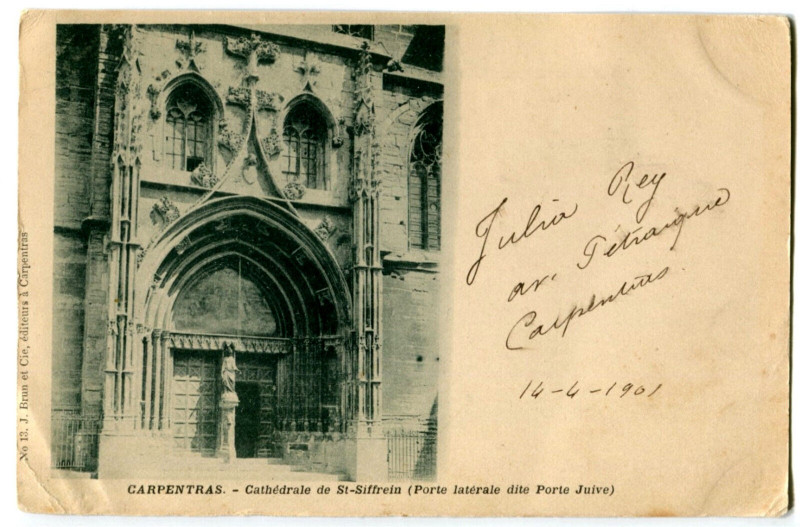 No 13. J. Brun et Cie, éditeurs à Carpentras
Julia Rey
av. Pétrarque
Carpentras
14-4-1901
CARPENTRAS. - Cathédrale de St-Siffrein (Porte latérale dite Porte Juive)